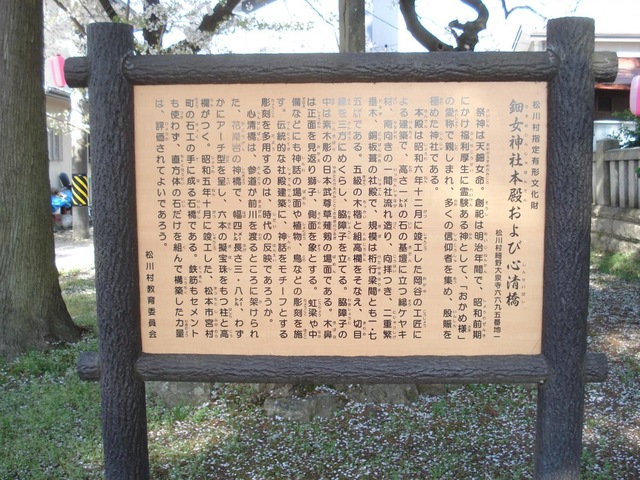 松川村指定有形文化財
鈿女神社本殿および心清橋
松川村細野大泉寺六六九五番地一
祭神は天鈿女命。創祀は明治年間で、昭和前期
にかけ福利厚生に霊験ある神として、「おかめ様」
の愛称で親しまれ、多くの信仰者を集め、殷賑を
極めた神社である。
本殿は昭和六年十二月に竣工した岡谷の工匠に
よる建築で、高さ一㍍の石の基壇に立つ総ケヤキ
材、南向きの一間社流れ造り、向拝つき、二重繁
垂木、銅板葺の社殿で、規模は桁行梁間とも一・七
五㍍である。五級の木楷と組高欄をそなえ、切目
縁を三方にめぐらし、脇障子を立てる。脇障子の
中は素木彫の日本武尊草薙剱の場面である。木鼻
は正面を見返り獅子、側面を象とする。虹梁や中
備などにも神話の場面や植物、鳥などの彫刻を施
す。伝統的な社殿建築に、神話をモチーフとする
彫刻を多用するのは、時代の反映であろうか。
心清橋は、参道が前川を渡るところに架けられ
た、花崗岩の神橋で、幅四㍍長さ三・八㍍、わず
かにアーチ型を呈し、六本の擬宝珠をもつ柱と高
欄がつく。昭和五年十月に竣工した、松本市宮村
町の石工の手に成る石橋である。鉄筋もセメント
も使わず、直方体の石だけを組んで構築した力量
は、評価されてよいであろう。
松川村教育委員会